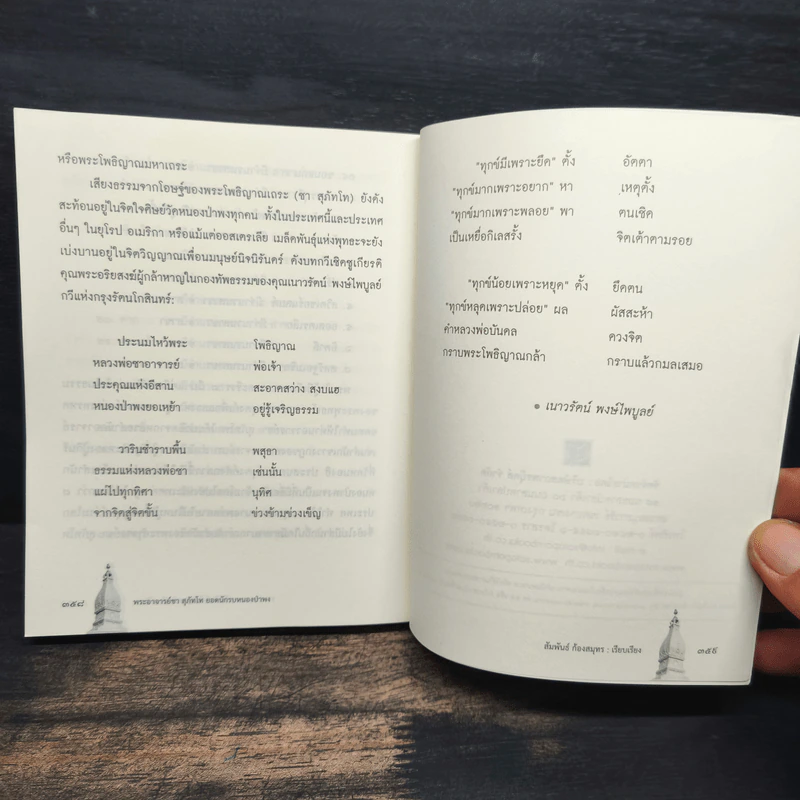 หรือพระโพธิญาณมหาเถระ
เสียงธรรมจากโอษฐ์ของพระโพธิญาณเถระ (ชา สุภัทโท) ยังดัง
สะท้อนอยู่ในจิตใจศิษย์วัดหนองป่าพงทุกคน ทั้งในประเทศนี้และประเทศ
อื่นๆ ในยุโรป อเมริกา หรือแม้แต่ออสเตรเลีย เมล็ดพันธุ์แห่งพุทธะจะยัง
เบ่งบานอยู่ในจิตวิญญาณเพื่อนมนุษย์นิจนิรันดร์ ดังบทกวีเชิดชูเกียรติ
คุณพระอริยสงฆ์ผู้กล้าหาญในกองทัพธรรมของคุณเนาวรัตน์ พงษ์ไพบูลย์
กวีแห่งกรุงรัตนโกสินทร์:
ประนมไหว้พระ โพธิญาณ
หลวงพ่อชาอาจารย์ พ่อเจ้า
ประคุณแห่งอีสาน สะอาดสว่าง สงบแฮ
หนองป่าพงยอเหย้า อยู่รู้เจริญธรรม
วารินชำราบพื้น พสุธา
ธรรมแห่งหลวงพ่อชา เช่นนั้น
แผ่ไปทุกทิศา นุทิศ
จากจิตสู่จิตขั้น ข่วงข้ามข่วงเข็ญ
๓๕๘ พระอาจารย์ชา สุภัทโท ยอดนักรบหนองป่าพง
"ทุกข์มีเพราะยึด" ตั้ง อัตตา
"ทุกข์มากเพราะอยาก" หา เหตุดั้ง
"ทุกข์มากเพราะพลอย" พา ตนเชิด
เป็นเหยื่อกิเลสรั้ง จิตเต้าตามรอย
"ทุกข์น้อยเพราะหยุด" ตั้ง ยึดตน
"ทุกข์หลุดเพราะปล่อย" ผล ผัสสะห้า
คำหลวงพ่อบันดล ดวงจิต
กราบพระโพธิญาณกล้า กราบแล้วกมลเสมอ
● เนาวรัตน์ พงษ์ไพบูลย์
สัมพันธ์ ก้องสมุทร : เรียบเรียง ๓๕๙